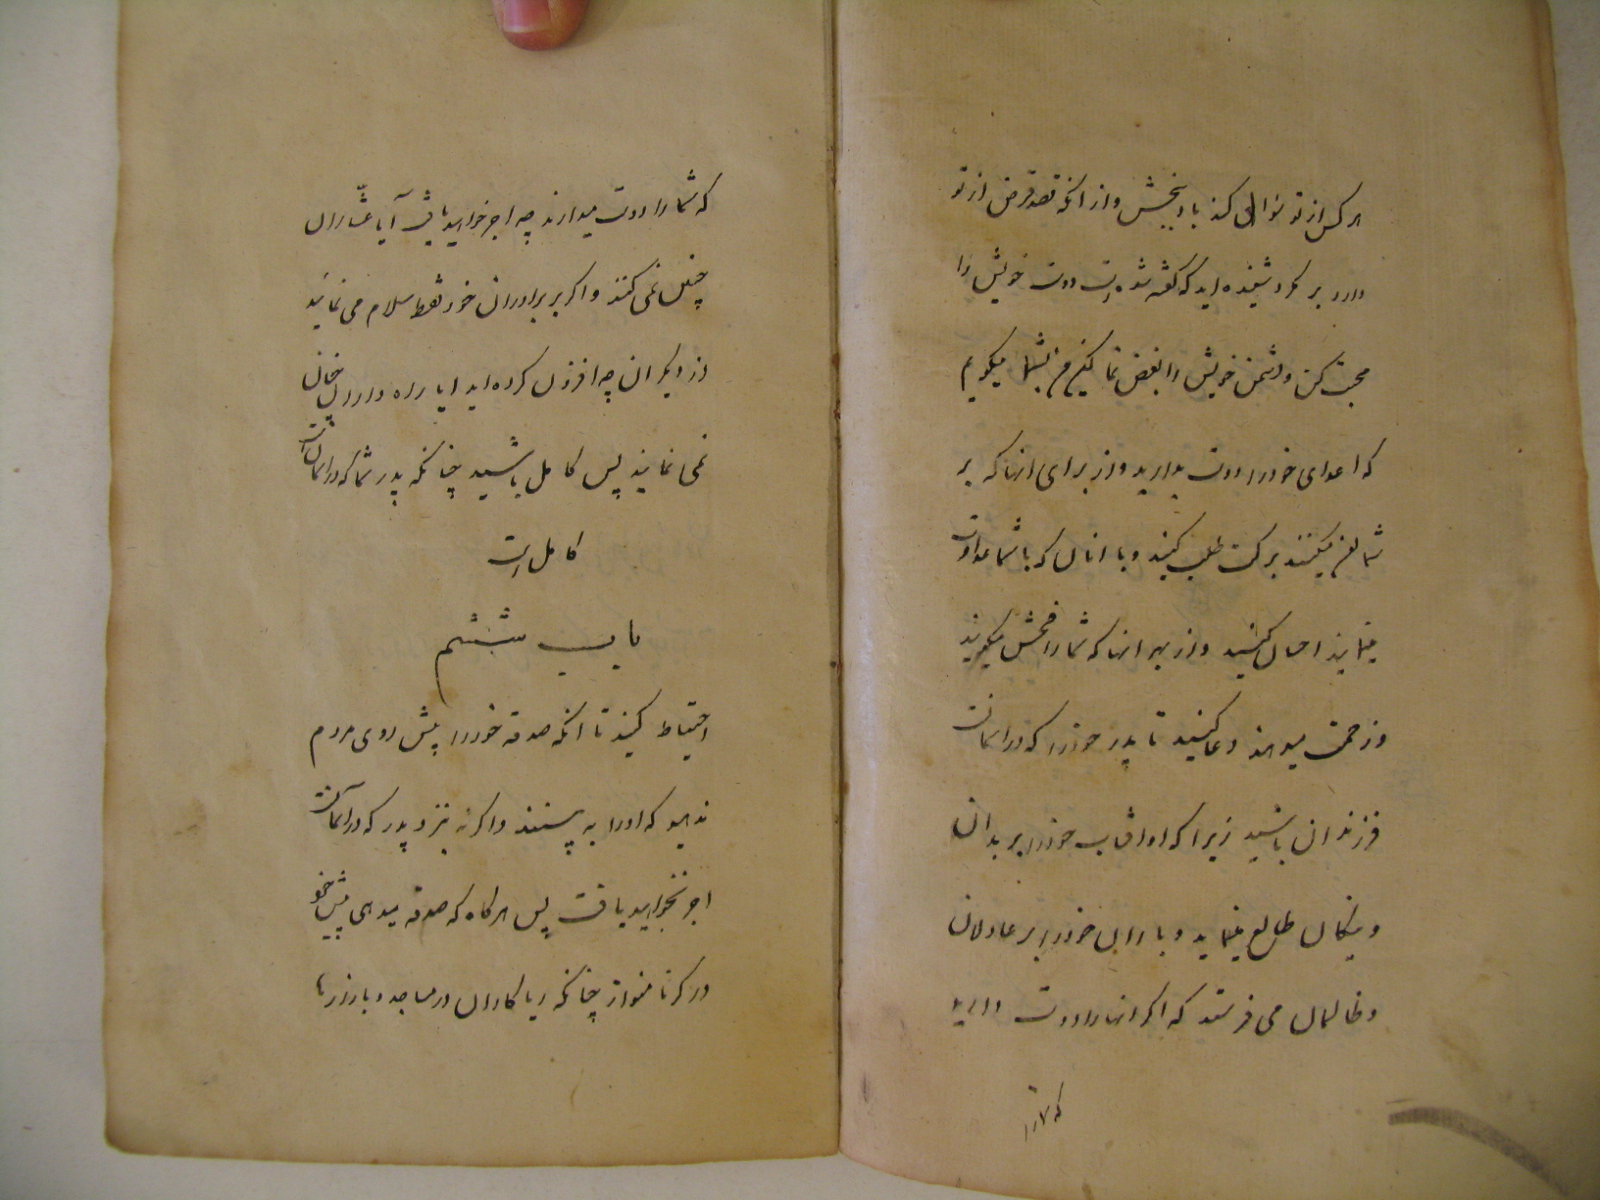 هر کس از تو سوالی کند باو ببخش و از انکه قصد قرض از تو
دارد بر مگرد شنیده اید که گفته شده است دوست خویش را
محبت کن و دشمن خویش را بغض نما لیکن من بشما میگویم
که اعدای خود را دوست بدارید و از برای انها که بر
شما لعن میکنند برکت طلب کنید و با انان که با شما عداوت
مینمایند احسان کنید و از بهر انها که شما را فحش میگویند
و زحمت میدهند دعا کنید تا پدر خود را که در اسمانست
فرزندان باشید زیرا که او افتاب خود را بر بدان
و نیکان طالع مینماید و باران خود را بر عادلان
و ظالمان می فرستد که اگر انها را دوست دارید
که شما را
که شما را دوست میدارند چه اجر خواهید یافت آیا عشّاران
چنین نمی کنند و اگر بر برادران خود فقط سلام می نمائید
از دیگران چه افزون کرده اید ایا چنان
نمی نمایند پس کامل باشید چنانکه پدر شما که در اسمان است
کامل است
باب ششم
احتیاط کنید تا انکه صدقه خود را پیش روی مردم
ندهید که او را به پسندند و اگر نه نزد پدر که در آسمانست
اجر نخواهید یافت پس هر گاه که صدقه میدهی پیش خود
در کرنا منواز چنانکه ریاکاران در مساجد و بازارها